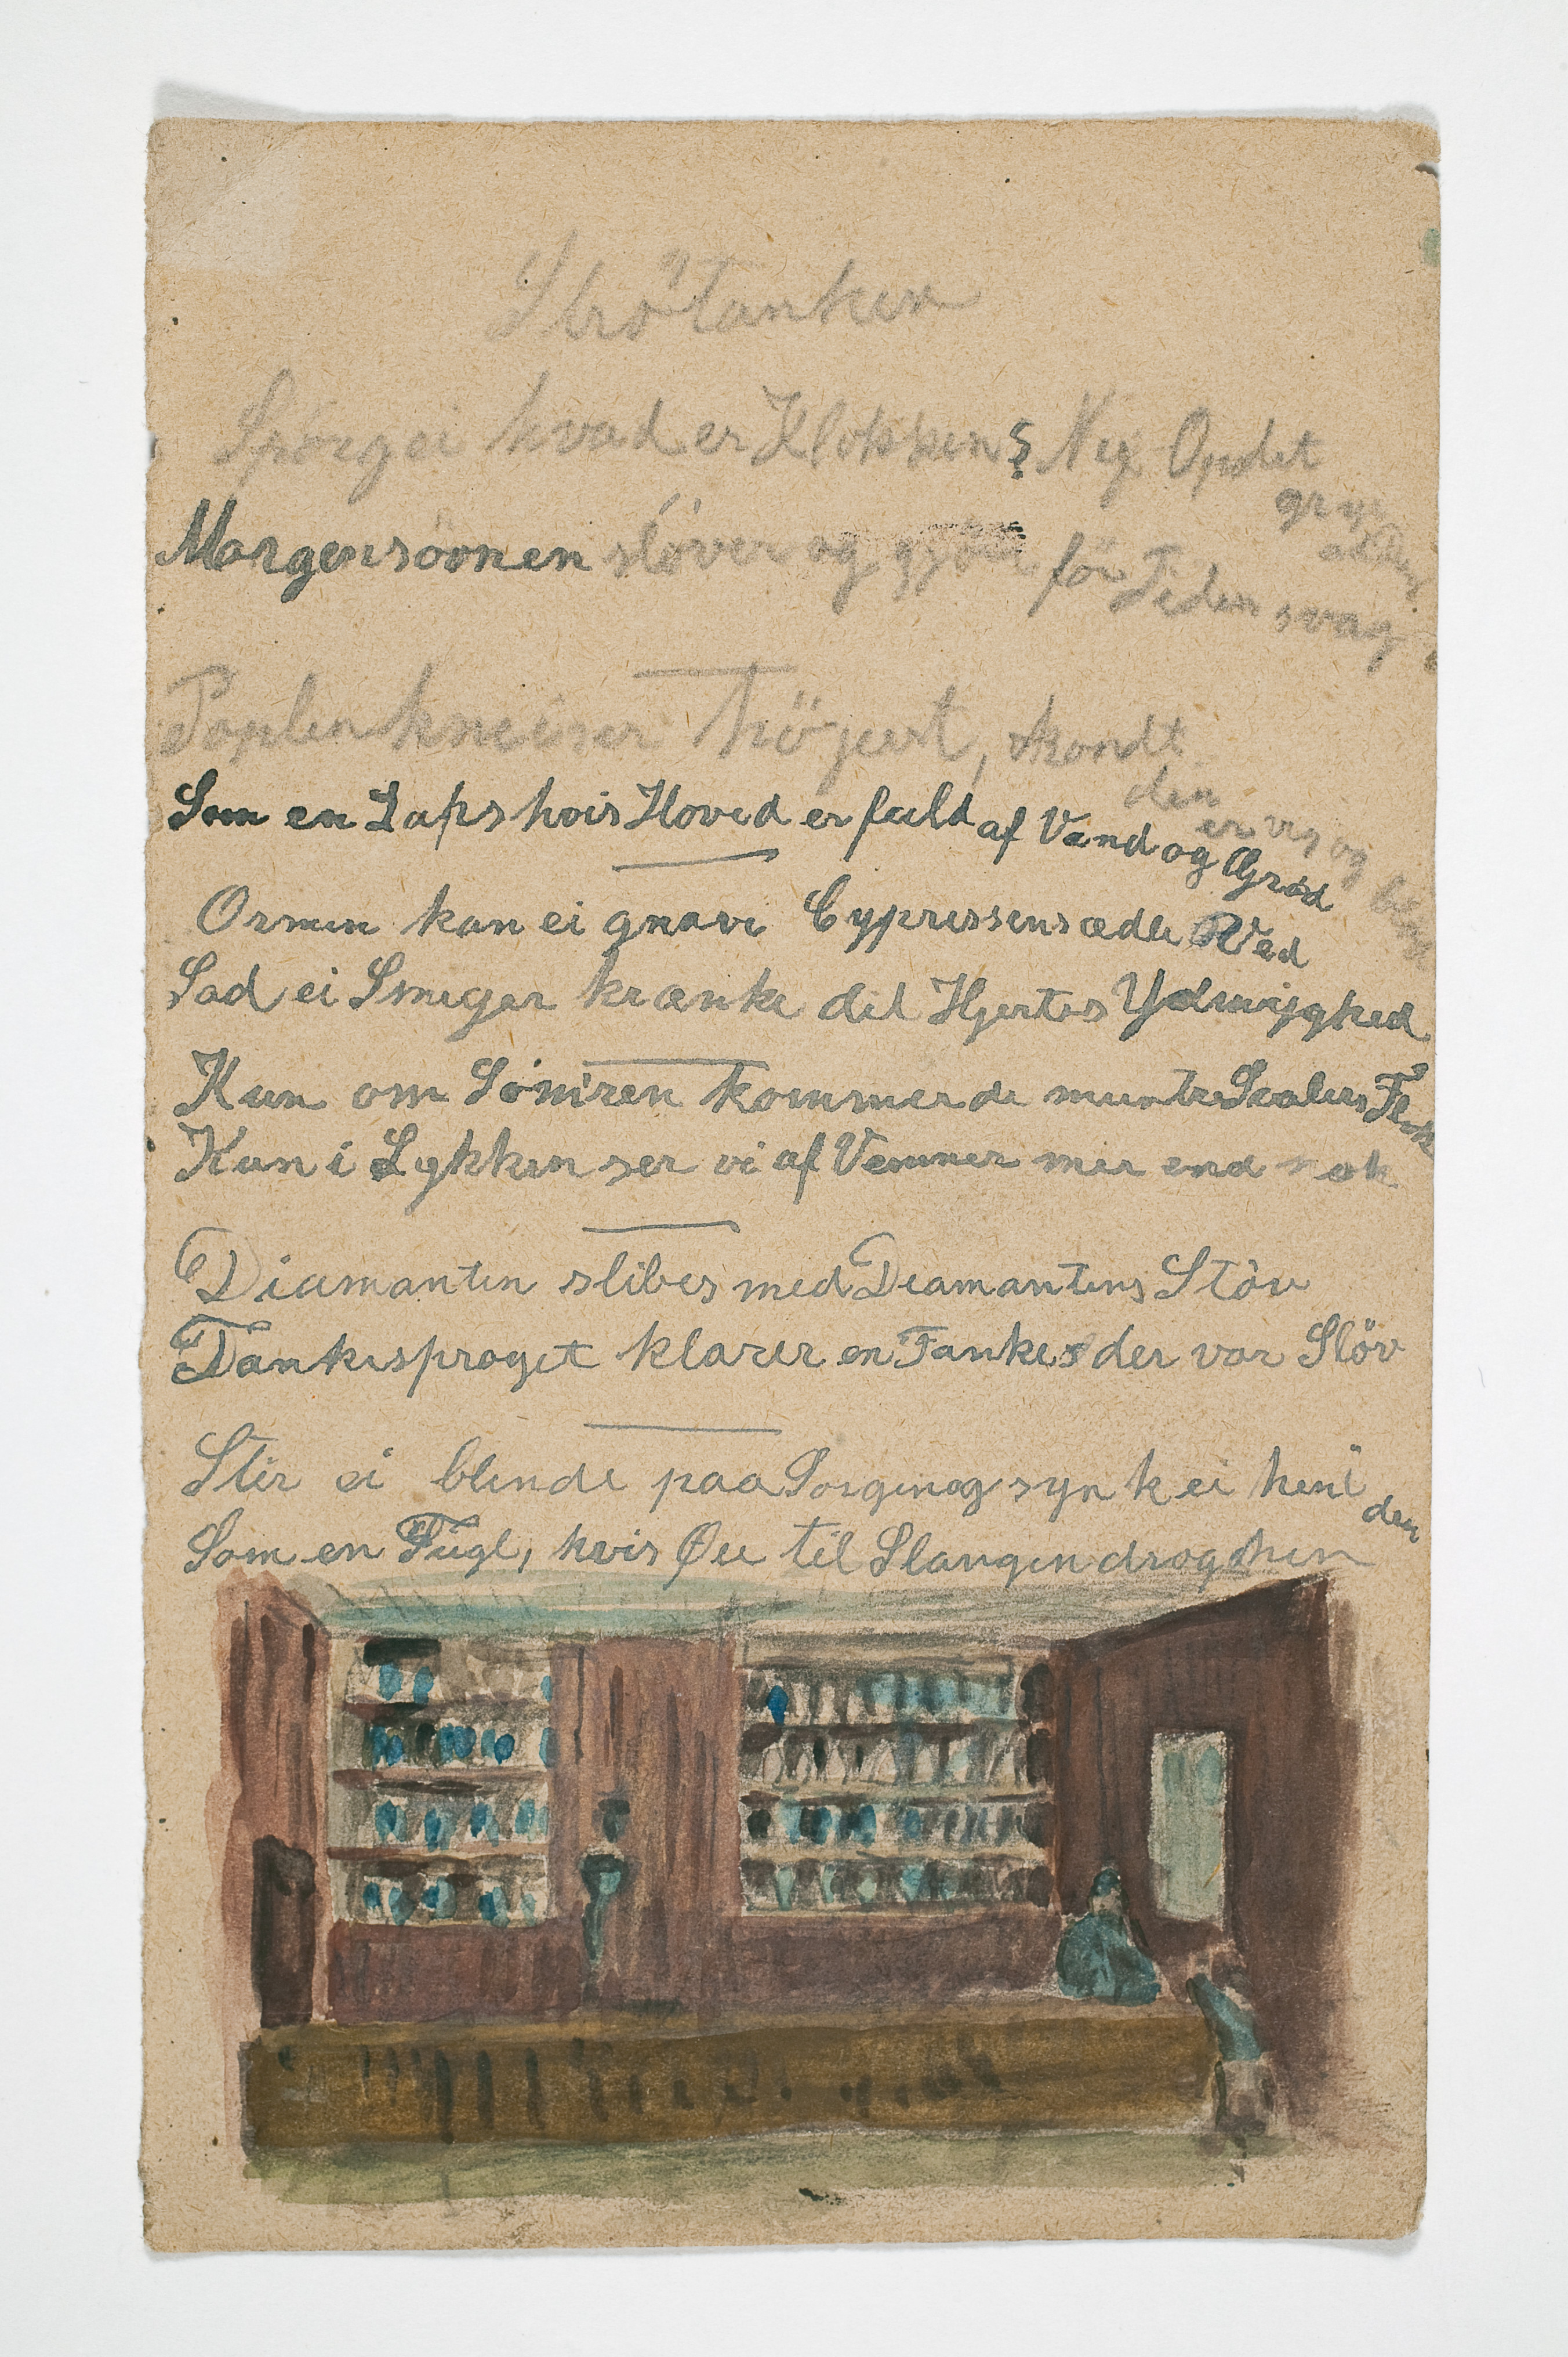 Strötanker
Spörger hvad er Klokken? Nei Op det gryr
Morgensövnen slöver og gjör för Tiden svag
Poplen kneiser höjest, skondt den er veg og
Som en Laps hvis Hoved er fuld af Vand og Gröd
Ormen kan ei gnave Cypressens ædle Ved
Lad ei Smiger krænke dit Hjertes Ydmyghed
Kun om Sömren kommer de muntre Svalers Flok
Kun i Lykken ser vi af Venner mer end nok
Diamanten slibes med Diamantens Stöv
Tankesproget klarer en Tanke der var Slöv
Stir ei blinde paa Sorgen og synk ei hen i den
Som en Fugl, hvis Øie til Slangen drog hen